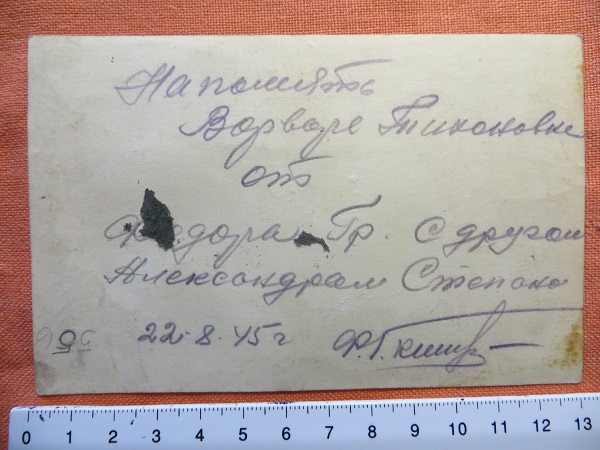 Напомять
Варваре Тихоновне
от
Федора Гр. с другом
Александрам Степано
22.8.45 г Ф.Г.
55
0 1 2 3 4 5 6 7 8 9 10 11 12 13